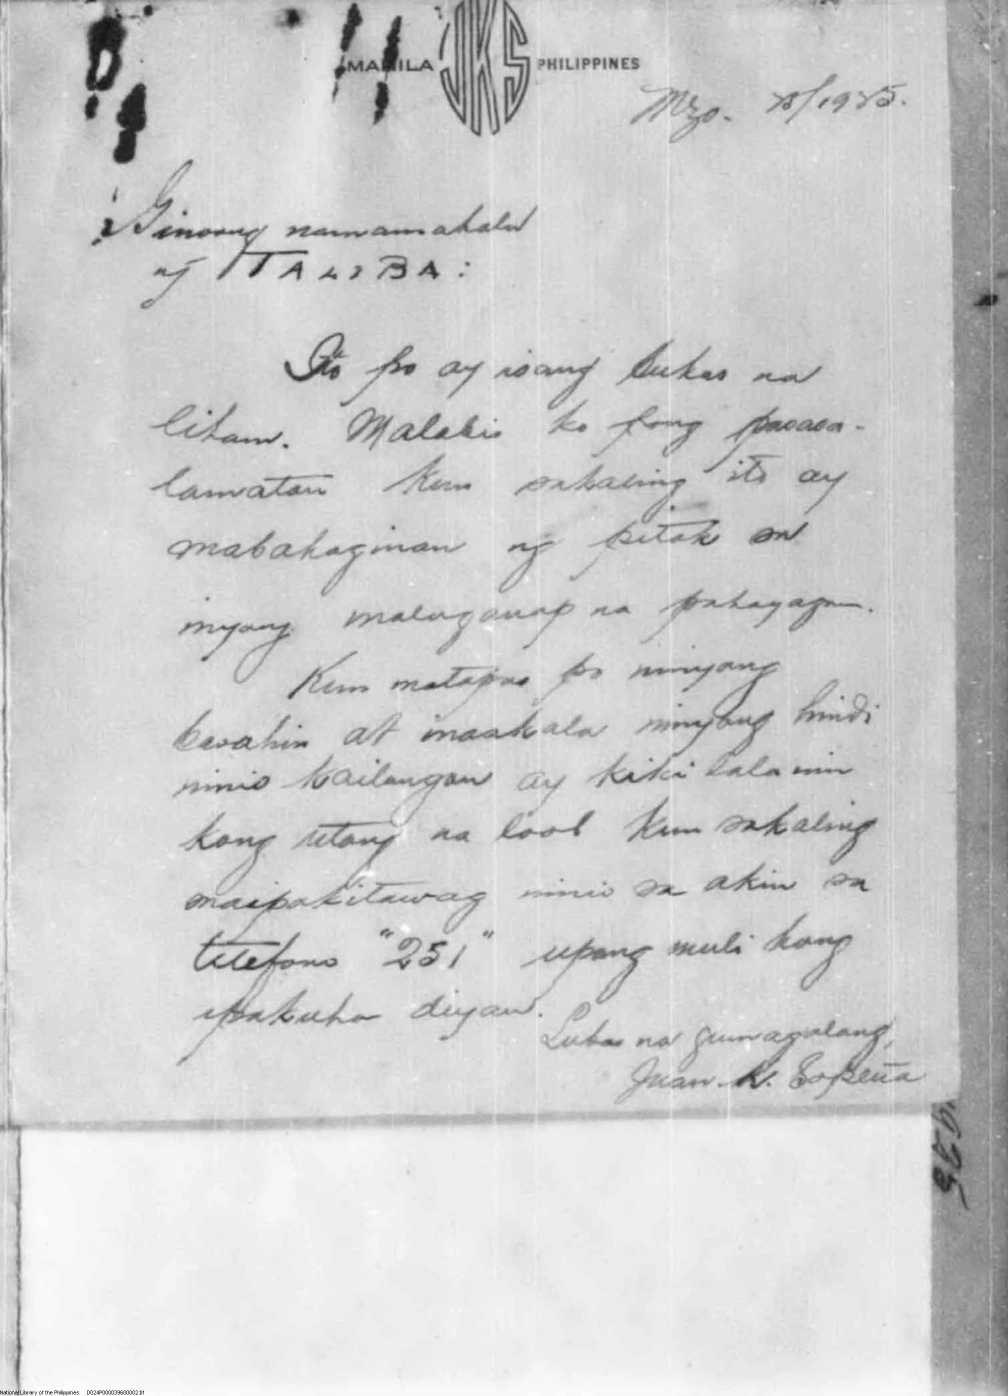 MANILA JKS PHILIPPINES
Mzo. 1925.
Ginoong namamahala
ng TALIBA:
Ito po ay isang bukas na
liham. Malabis ko pong pasasa-
lamatan kun sakaling ito ay
mabahaginan ng pitak sa
inyong malaganap na pahayagan.
Kun matapos po ninyong
basahin at inaakala ninyong hindi
ninio kailangan ay kikilalanin
kong utang na loob kun sakaling
maipakitawag ninio sa akin sa
telefono "251" upang muli kong
ipakuha diyan.
Lubos na gumagalang,
Juan K.
National Library of the Philippines